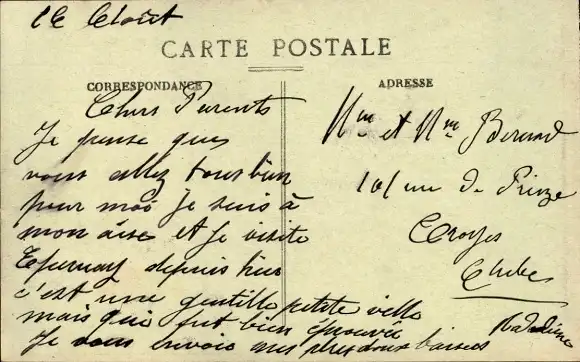 le Août
CARTE POSTALE
CORRESPONDANCE
ADRESSE
Chers Parents
Je pense que
vous allez tous bien
pour moi je suis à
mon aise et je visite
Epernay depuis hier
c'est une gentille petite ville
mais qui fut bien éprouvée
Je vous envoie mes plus doux baisers
Mme et Mr
101 rue de Preize
Troyes
Aube